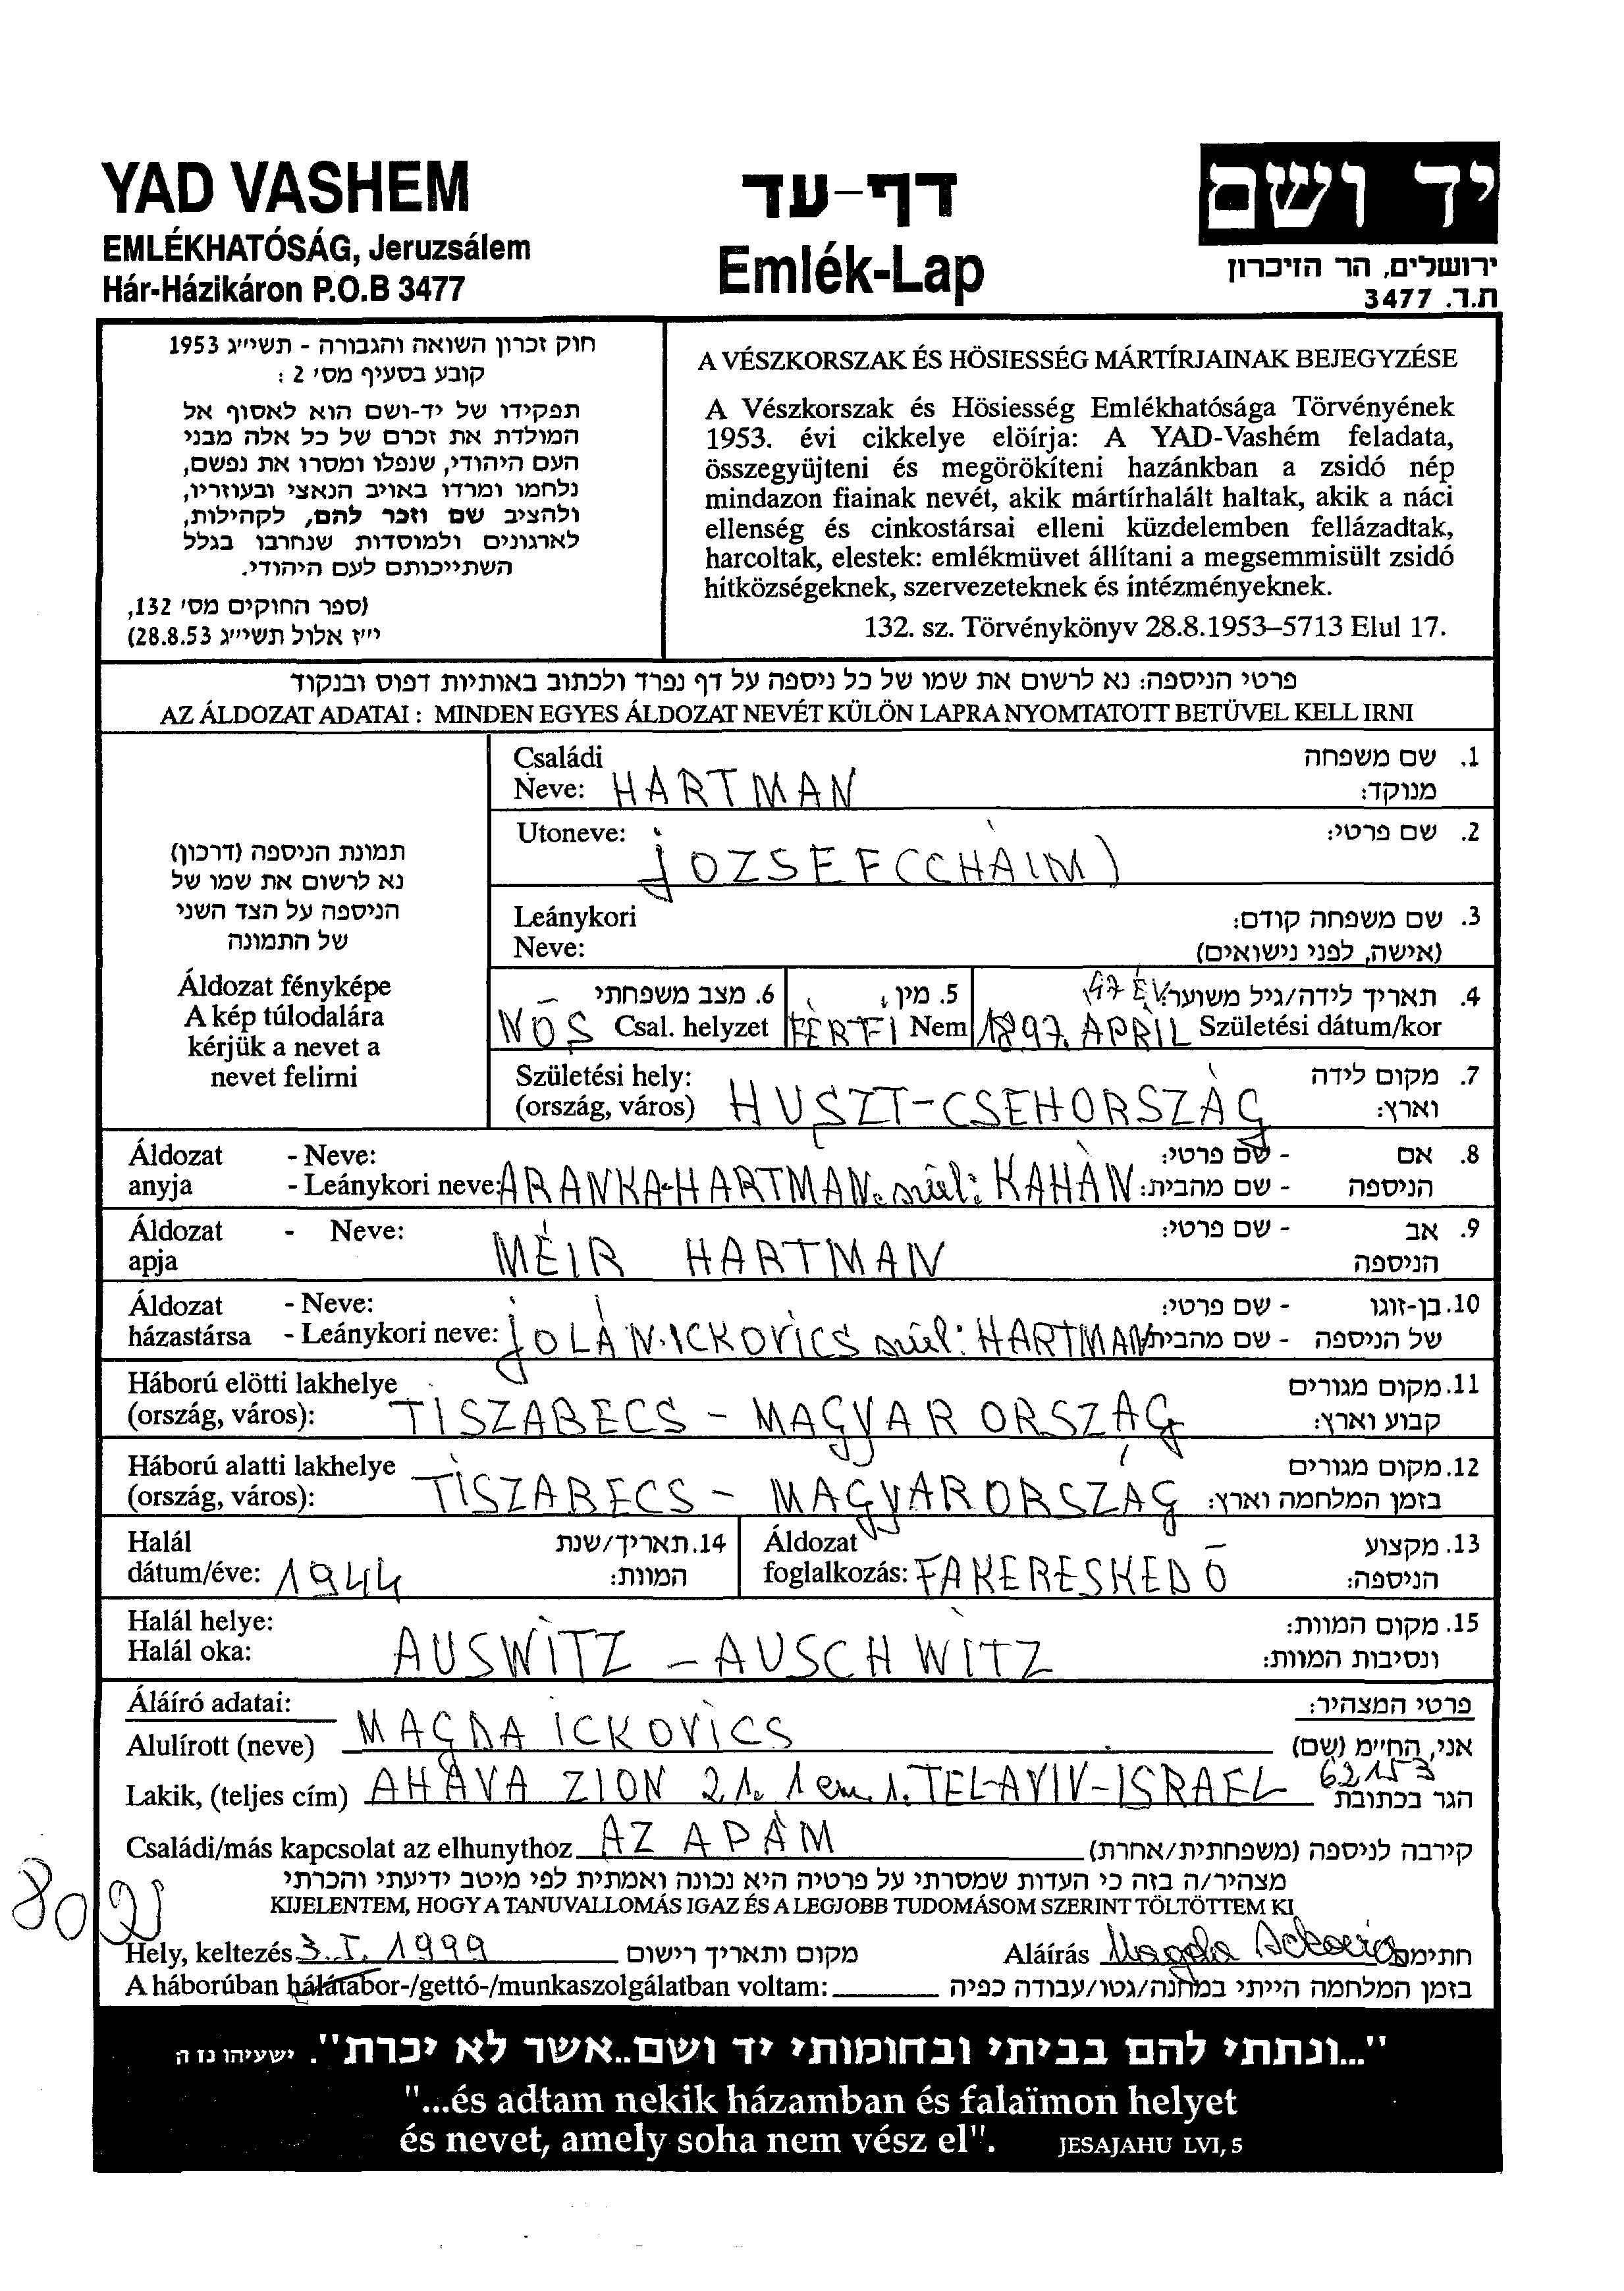 YAD VASHEM
EMLÉKHATÓSÁG, Jeruzsálem
Hár-Házikáron P.O.B 3477
דף-עד
Emlék-Lap
יד ושם
ירושלים, הר הזיכרון
ת.ד. 3477
חוק זכרון השואה והגבורה - תשי״ג 1953
קובע בסעיף מס׳ 2 :
תפקידו של יד-ושם הוא לאסוף אל
המולדת את זכרם של כל אלה מבני
העם היהודי, שנפלו ומסרו את נפשם,
נלחמו ומרדו באויב הנאצי ובעוזריו,
ולהציב שם וזכר להם, לקהילות,
לארגונים ולמוסדות שנחרבו בגלל
השתייכותם לעם היהודי.
(ספר החוקים מס׳ 132,
י״ז אלול תשי״ג 28.8.53)
A VÉSZKORSZAK ÉS HÖSIESSÉG MÁRTÍRJAINAK BEJEGYZÉSE
A Vészkorszak és Hösiesség Emlékhatósága Törvényének
1953. évi cikkelye elöírja: A YAD-Vashém feladata,
összegyüjteni és megörökíteni hazánkban a zsidó nép
mindazon fiainak nevét, akik mártírhalált haltak, akik a náci
ellenség és cinkostársai elleni küzdelemben fellázadtak,
harcoltak, elestek: emlékmüvet állítani a megsemmisült zsidó
hitközségeknek, szervezeteknek és intézményeknek.
132. sz. Törvénykönyv 28.8.1953–5713 Elul 17.
פרטי הניספה: נא לרשום את שמו של כל ניספה על דף נפרד ולכתוב באותיות דפוס ובנקוד
AZ ÁLDOZAT ADATAI : MINDEN EGYES ÁLDOZAT NEVÉT KÜLÖN LAPRA NYOMTATOTT BETÜVEL KELL IRNI
תמונת הניספה (דרכון)
נא לרשום את שמו של
הניספה על הצד השני
של התמונה
Áldozat fényképe
A kép túlodalára
kérjük a nevet a
nevet felirni
Családi 1. שם משפחה
Neve: HARTMAN מנוקד:
Utoneve: JOZSEF (CHAIM) 2. שם פרטי:
Leánykori 3. שם משפחה קודם:
Neve: (אישה, לפני נישואים)
6. מצב משפחתי 5. מין 47 ÉV 4. תאריך לידה/גיל משוער:
NŐS Csal. helyzet FÉRFI Nem 1897. APRIL Születési dátum/kor
Születési hely: 7. מקום לידה
(ország, város) HUSZT-CSEHORSZÁG וארץ:
Áldozat - Neve: - שם פרטי: 8. אם
anyja - Leánykori neve: ARANKA-HARTMAN. szül: KAHÁN - שם מהבית: הניספה
Áldozat - Neve: - שם פרטי: 9. אב
apja MÉIR HARTMAN הניספה
Áldozat - Neve: - שם פרטי: 10. בן-זוגו
házastársa - Leánykori neve: JOLÁN. ICKOVICS szül: HARTMAN - שם מהבית של הניספה
Háború elötti lakhelye 11. מקום מגורים
(ország, város): TISZABECS - MAGYARORSZÁG קבוע וארץ:
Háború alatti lakhelye 12. מקום מגורים
(ország, város): TISZABECS - MAGYARORSZÁG בזמן המלחמה וארץ:
Halál 14. תאריך/שנת Áldozat 13. מקצוע
dátum/éve: 1944 המוות: foglalkozás: FAKERESKEDŐ הניספה:
Halál helye: 15. מקום המוות:
Halál oka: AUSWITZ - AUSCHWITZ ונסיבות המוות:
Áláíró adatai: פרטי המצהיר:
Alulírott (neve) MAGDA ICKOVICS אני, החיימ (שם)
Lakik, (teljes cím) AHAVA ZION 21. 1 em. 1. TEL-AVIV-ISRAEL 62153 הגר בכתובת
Családi/más kapcsolat az elhunythoz AZ APÁM קירבה לניספה (משפחתית/אחרת)
מצהיר/ה בזה כי העדות שמסרתי על פרטיה היא נכונה ואמתית לפי מיטב ידיעתי והכרתי
KIJELENTEM, HOGY A TANUVALLOMÁS IGAZ ÉS A LEGJOBB TUDOMÁSOM SZERINT TÖLTÖTTEM KI
Hely, keltezés 3. I. 1999 מקום ותאריך רישום Aláírás Magda Ickovics חתימה
A háborúban hálátábor-/gettó-/munkaszolgálatban voltam: בזמן המלחמה הייתי במחנה/גטו/עבודה כפיה
"...ונתתי להם בביתי ובחומותי יד ושם..אשר לא יכרת". ישעיהו נז ה
"...és adtam nekik házamban és falaïmon helyet
és nevet, amely soha nem vész el". JESAJAHU LVI, 5